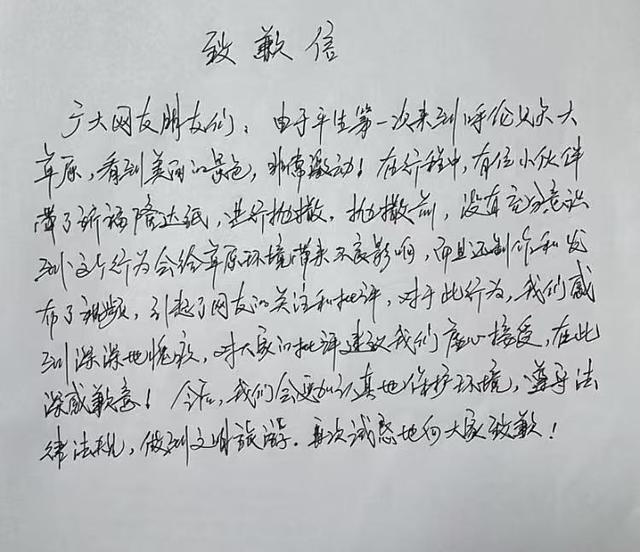 致歉信
广大网友朋友们：由于平生第一次来到呼伦贝尔大
草原，看到美丽的景色，非常激动！在行程中，有位小伙伴
带了祈福隆达纸，进行抛撒，抛撒前，没有充分意识
到这个行为会给草原环境带来不良影响，而且还制作和发
布了视频，引起了网友的关注和批评，对于此行为，我们感
到深深地愧疚，对大家的批评建议我们虚心接受，在此
深感歉意！今后，我们会更加认真地保护环境，遵守法
律法规，做到文明旅游。再次诚恳地向大家致歉！